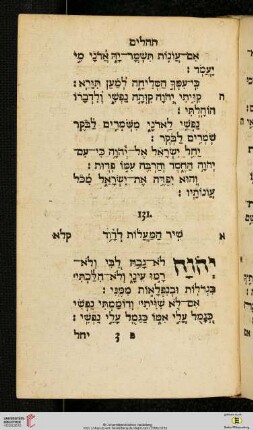 תהלים
אִם־עֲוֹנוֹת תִּשְׁמָר־יָהּ אֲדֹנָי מִי
יַעֲמֹד :
כִּי־עִמְּךָ הַסְּלִיחָה לְמַעַן תִּוָּרֵא :
ה קִוִּיתִי יְהֹוָה קִוְּתָה נַפְשִׁי וְלִדְבָרוֹ
הוֹחָלְתִּי :
נַפְשִׁי לַאדֹנָי מִשֹּׁמְרִים לַבֹּקֶר
שֹׁמְרִים לַבֹּקֶר :
יַחֵל יִשְׂרָאֵל אֶל־יְהֹוָה כִּי־עִם־
יְהֹוָה הַחֶסֶד וְהַרְבֵּה עִמּוֹ פְדוּת :
וְהוּא יִפְדֶּה אֶת־יִשְׂרָאֵל מִכֹּל
עֲוֹנוֹתָיו :
131.
א שִׁיר הַמַּעֲלוֹת לְדָוִד קלא
יְהֹוָה לֹא־גָבַהּ לִבִּי וְלֹא־
רָמוּ עֵינַי וְלֹא־הִלַּכְתִּי
בִּגְדֹלוֹת וּבְנִפְלָאוֹת מִמֶּנִּי :
אִם־לֹא שִׁוִּיתִי וְדוֹמַמְתִּי נַפְשִׁי
כְּגָמֻל עֲלֵי אִמּוֹ כַּגָּמֻל עָלַי נַפְשִׁי :
3 יחל